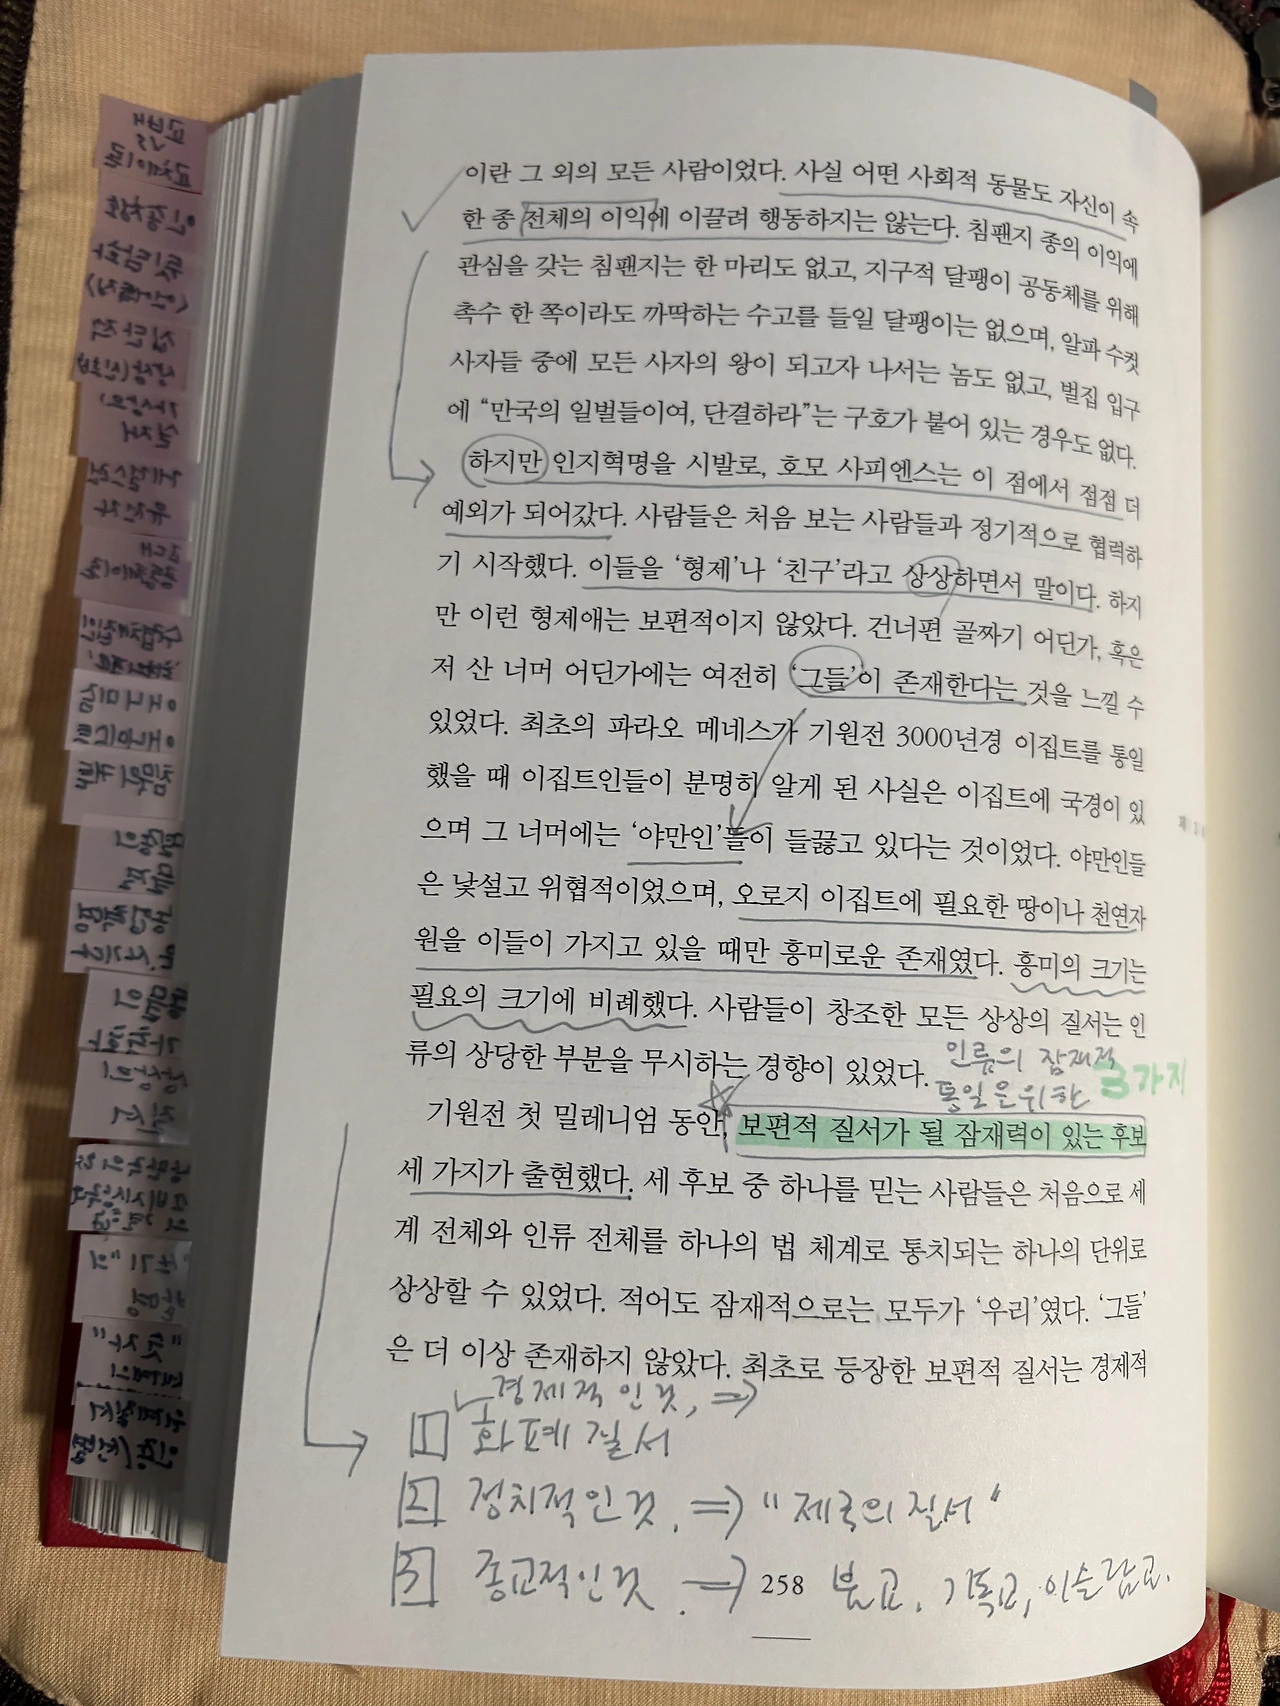 이란 그 외의 모든 사람이었다. 사실 어떤 사회적 동물도 자신이 속
한 종 전체의 이익에 이끌려 행동하지는 않는다. 침팬지 종의 이익에
관심을 갖는 침팬지는 한 마리도 없고, 지구적 달팽이 공동체를 위해
촉수 한 쪽이라도 까딱하는 수고를 들일 달팽이는 없으며, 알파 수컷
사자들 중에 모든 사자의 왕이 되고자 나서는 놈도 없고, 벌집 입구
에 “만국의 일벌들이여, 단결하라”는 구호가 붙어 있는 경우도 없다.
하지만 인지혁명을 시발로, 호모 사피엔스는 이 점에서 점점 더
예외가 되어갔다. 사람들은 처음 보는 사람들과 정기적으로 협력하
기 시작했다. 이들을 ‘형제’나 ‘친구’라고 상상하면서 말이다. 하지
만 이런 형제애는 보편적이지 않았다. 건너편 골짜기 어딘가, 혹은
저 산 너머 어딘가에는 여전히 ‘그들’이 존재한다는 것을 느낄 수
있었다. 최초의 파라오 메네스가 기원전 3000년경 이집트를 통일
했을 때 이집트인들이 분명히 알게 된 사실은 이집트에 국경이 있
으며 그 너머에는 ‘야만인’들이 들끓고 있다는 것이었다. 야만인들
은 낯설고 위협적이었으며, 오로지 이집트에 필요한 땅이나 천연자
원을 이들이 가지고 있을 때만 흥미로운 존재였다. 흥미의 크기는
필요의 크기에 비례했다. 사람들이 창조한 모든 상상의 질서는 인
류의 상당한 부분을 무시하는 경향이 있었다.
인류의 잠재적
통일을 위한 3가지
기원전 첫 밀레니엄 동안, 보편적 질서가 될 잠재력이 있는 후보
세 가지가 출현했다. 세 후보 중 하나를 믿는 사람들은 처음으로 세
계 전체와 인류 전체를 하나의 법 체계로 통치되는 하나의 단위로
상상할 수 있었다. 적어도 잠재적으로는 모두가 ‘우리’였다. ‘그들’
은 더 이상 존재하지 않았다. 최초로 등장한 보편적 질서는 경제적
경제적인 것, ⇒
1 화폐 질서
2 정치적인 것. ⇒ "제국의 질서"
3 종교적인 것. ⇒ 불교, 기독교, 이슬람교.
258